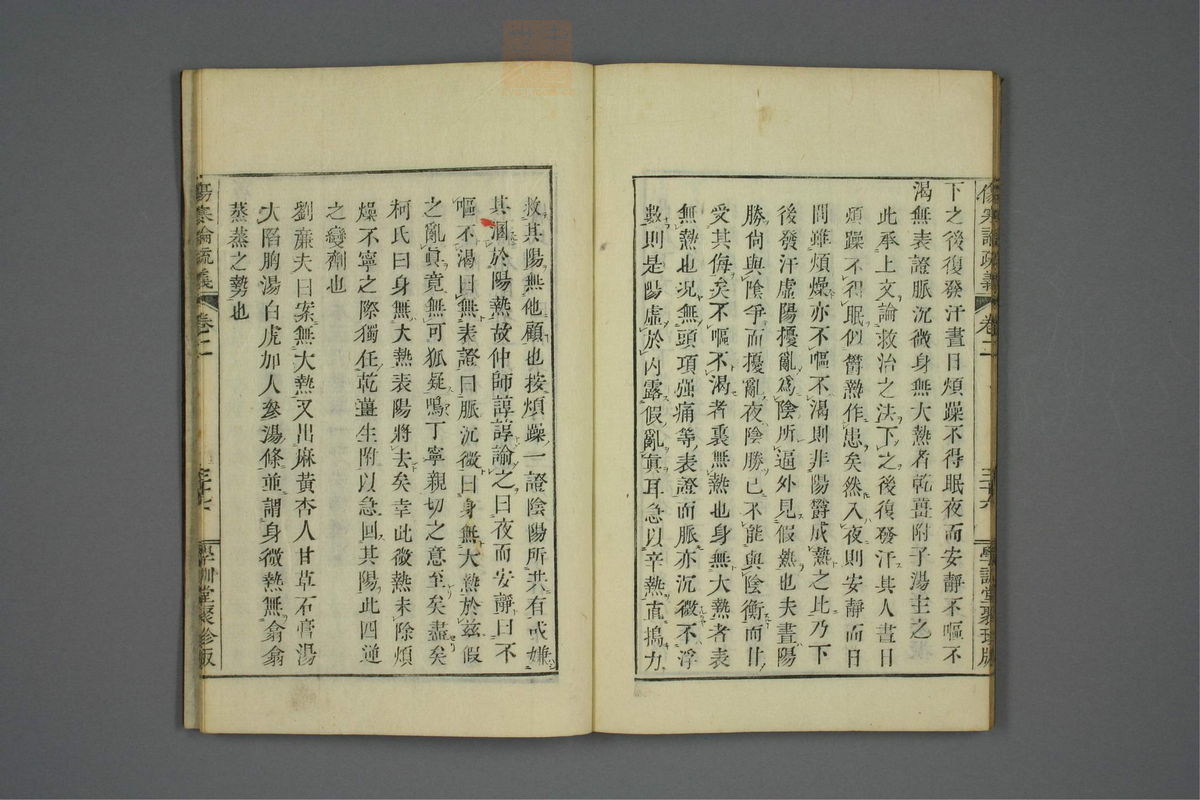 下之後復發汗晝日煩躁不得眠夜而安靜不嘔不
渴無表證脈沉微身無大熱者乾薑附子湯主之
此承上文論救治之法下之後復發汗其人晝日
煩躁不得眠似鬱熱作患矣然入夜則安靜而日
間雖煩燥亦不嘔不渴則非陽鬱成熱之比乃下
後發汗虛陽擾亂爲陰所逼外見假熱也夫晝陽
勝尙與陰爭而擾亂夜陰勝已不能與陰衡而甘
受其侮矣不嘔不渴者裏無熱也身無大熱者表
無熱也況無頭項强痛等表證而脈亦沉微不浮
數則是陽虛於內露假亂眞耳急以辛熱直搗力
救其陽無他顧也按煩躁一證陰陽所共有或嫌
其溷於陽熱故仲師諄諄諭之曰夜而安靜曰不
嘔不渴曰無表證曰脈沉微曰身無大熱於茲假
之亂眞竟無可狐疑嗚丁寧親切之意至矣盡矣
柯氏曰身無大熱表陽將去矣幸此微熱未除煩
燥不寧之際獨任乾薑生附以急回其陽此四逆
之變劑也
劉廉夫曰案無大熱又出麻黃杏人甘草石膏湯
大陷胸湯白虎加人參湯條並謂身微熱無翕翕
蒸蒸之勢也
傷寒論疏義
卷二
學訓堂聚珍版